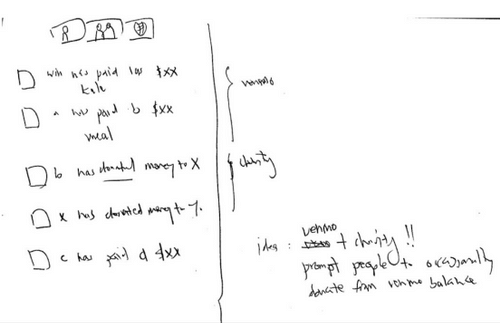 has paid $xx
a has paid b $xx
meal
b has donated money to X
x has donated money to y.
c has paid d $xx
venmo
charity
idea : venmo + charity !!
prompt people to occasionally
donate from venmo balance